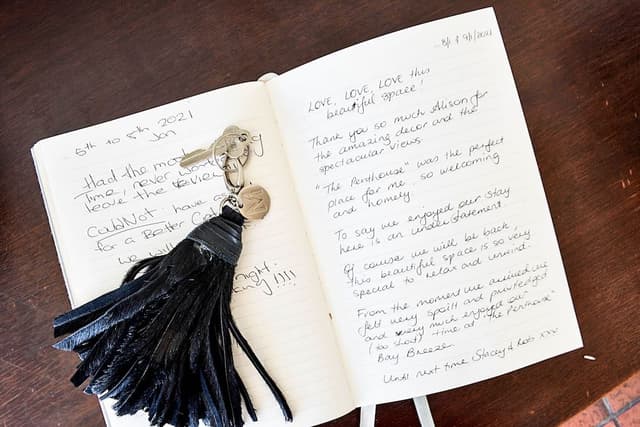 5th to 8th 2021
Jan
Had the most
Time, never
leave the
COULDNOT have
for a Better
we
night
!!!!
8/1 & 9/1/2021
LOVE, LOVE, LOVE this
beautiful space!
Thank you so much Alison for
the amazing decor and the
spectacular views.
"The Penthouse" was the perfect
place for me, so welcoming
and homely.
To say we enjoyed our stay
here is an understatement.
Of course we will be back
this beautiful space is so very
special to relax and unwind.
From the moment we arrived we
felt very spoilt and privileged
and very much enjoyed our
(too short) time at "The Penthouse"
Bay Breeze
Until next time Stacey & Rob xxx